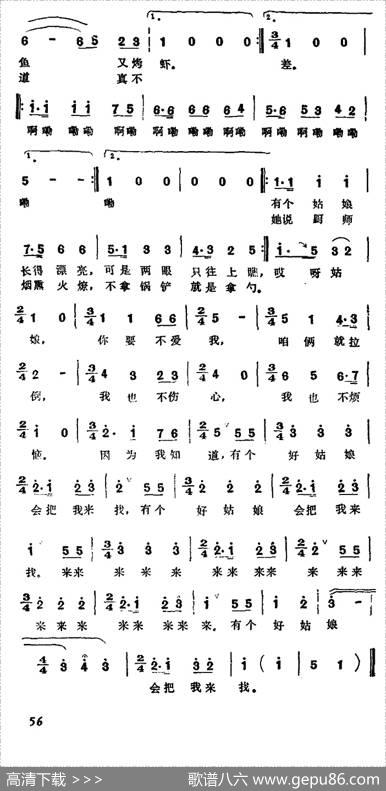 1. 2.
6 - - 65 23 | 1 0 0 :‖ 3/4 1 0 0 |
鱼 又烤 虾。 差。
道 真不
‖: i·i i i 7 5 | 6·6 6 6 6 4 | 5·6 5 3 4 2 |
啊嘞 嘞嘞 啊嘞 啊嘞 嘞嘞 啊嘞 啊嘞 啊嘞 啊嘞
1. 2.
5 - - :‖ 1 0 0 | 0 0 0 ‖: i·i i i |
嘞 嘞 有个 姑娘
她说 厨师
7·5 6 6 | 5·1 3 3 | 4·3 2 5 :‖ i· 5 3 2 |
长得 漂亮，可是 两眼 只往 上瞧，哎 呀姑
烟熏 火燎，不拿 锅铲 就是 拿勺。
2/4 1 0 | 3/4 1 1 6 6 | 2/4 5 - | 3/4 5 1 4·3 |
娘， 你 要 不爱 我， 咱 俩 就拉
2/4 2 - | 3/4 4 3 2 3 | 2/4 4 0 | 3/4 6 5 6·7 |
倒， 我 也 不伤 心， 我 也 不烦
2/4 i 0 | 3/4 2· i 7 6 | 2/4 5 5 5 | 3/4 3 3 3 |
恼。 因 为 我知 道，有个 好 姑娘
2/4 2·i 2 3 | 2 5 5 | 3/4 3 3 3 | 2/4 2·i 2 3 |
会把 我来 找，有个 好 姑娘 会把 我来
i 5 5 | 3/4 3 3 3 | 2/4 2·i 2 3 | 2 5 5 |
找。来来 来 来 来 来来 来来 来 来来
3/4 2 2 2 | 2/4 2·i 2 3 | i 5 5 | 1 2 | 3 - |
来 来 来 来来 来来 来。有个 好 姑 娘
4/4 3 4 3 | 2/4 2·i i 3 | i ( i | 5 1 ) ‖
会把 我来 找。
56
高清下载 >>> 歌谱八六 www.gepu86.com